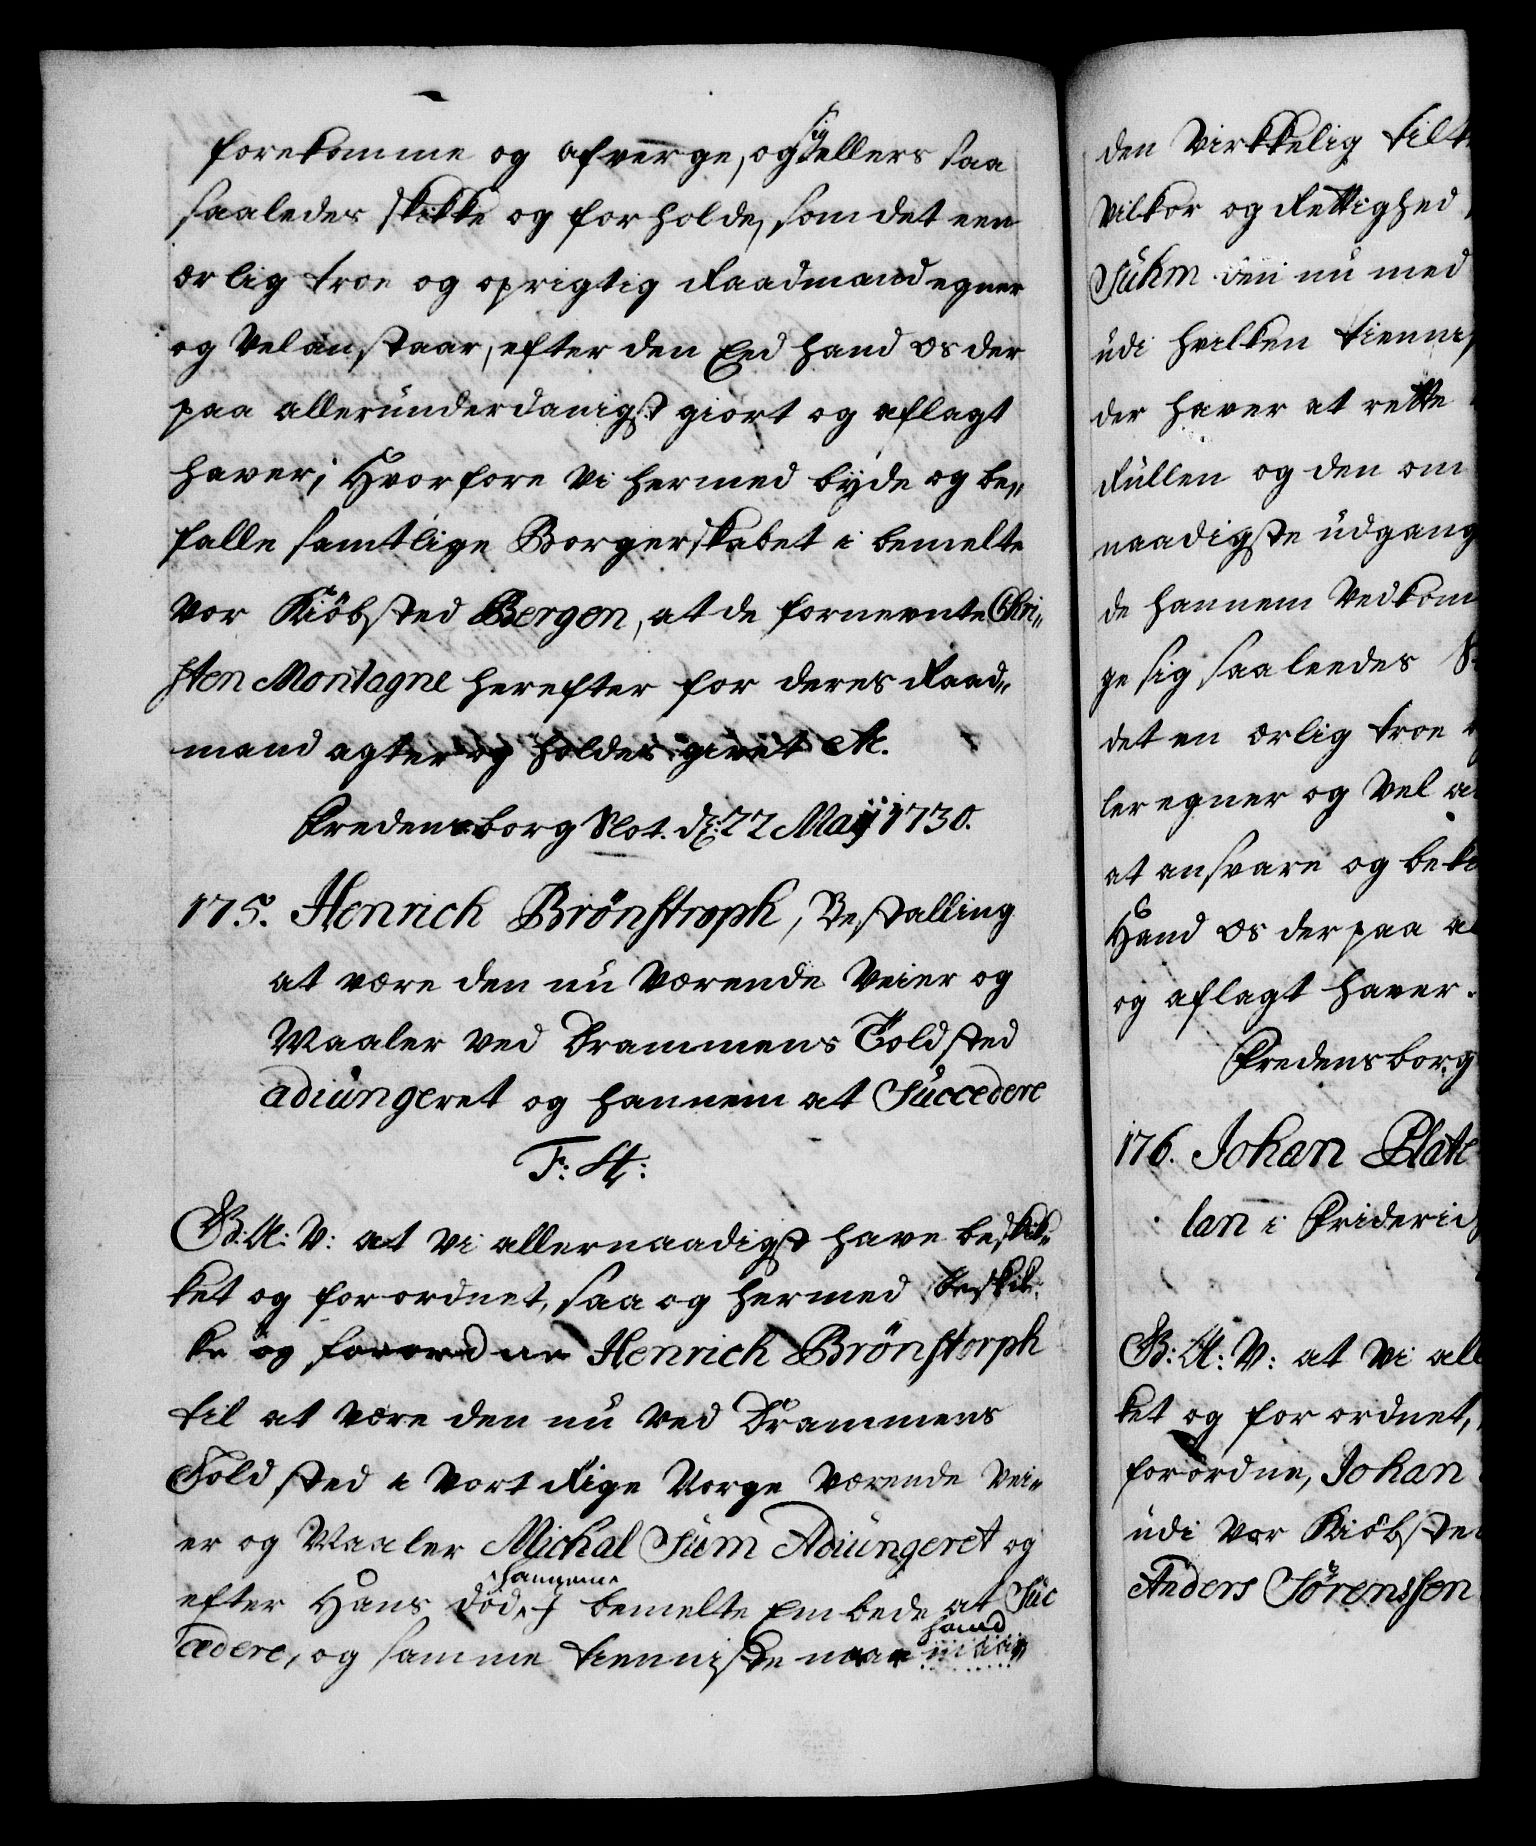 forekomme og afverge, og sig ellers saa
saaledes skikke og forholde, som det een
ærlig troe og oprigtig Raadmand egner
og Vel anstaar, efter den Eed hand os der
paa allerunderdanigst giort og aflagt
haver; Hvorfore Vi hermed byde og be„
falle samtlige Borgerskabet i bemelte
Vor Kiöbsted Bergen, at de fornevnte Chri„
sten Montagne herefter for deres Raad„
mand agter og holder givet etc.
Fredensborg Slot. d: 22 Maij 1730.
175. Henrich Brönstroph, Bestalling
at være den nu Værende Veier og
Maaler Ved Drammens Toldsted
adiungeret og hannem at Succedere
F: 4:
G: A: V: at Vi allernaadigst have beskik„
ket og forordnet, saa og hermed beskik„
ke og forordne Henrich Brönstorph
til at være den nu Ved Drammens
Toldsted i Vort Rige Norge Værende Vei„
er og Maaler Michal Sum Adiungeret og
efter Hans död, hannem i bemelte Embede at Suc
cedere, og samme tienniste naar hand
den Virkkelig tilt
Vilkor og Rettighed
Suhm den nu med
udi hvilken tiennis
der haver at rette
Rullen og den om
naadigste udgang
de hannem Vedkom
ge sig saaleedes
det en ærlig troe
ler egner og Vel a
at ansvare og bek
Hand os der paa a
og aflagt haver.
Fredensborg
176. Johan Plate
lan i Frideric
G: A: V: at Vi all
ket og forordnet,
forordne, Johan
udi Vor Kiöbste
Anders Sörenssen